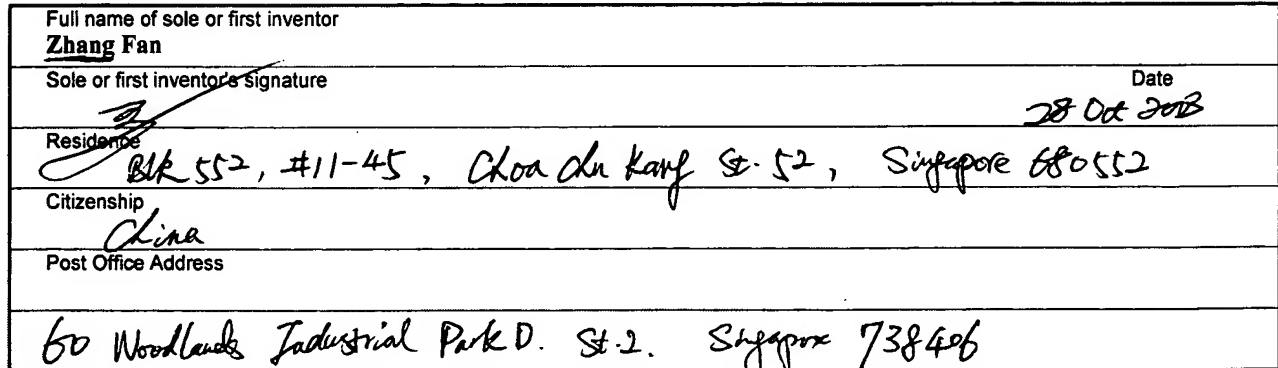 Full name of sole or first inventor
Zhang Fan
Sole or first inventor's signature Date
28 Oct 2003
Residence
Blk 552, #11-45, Choa Chu Kang St. 52, Singapore 680552
Citizenship
China
Post Office Address
60 Woodlands Industrial Park D. St.2. Singapore 738406